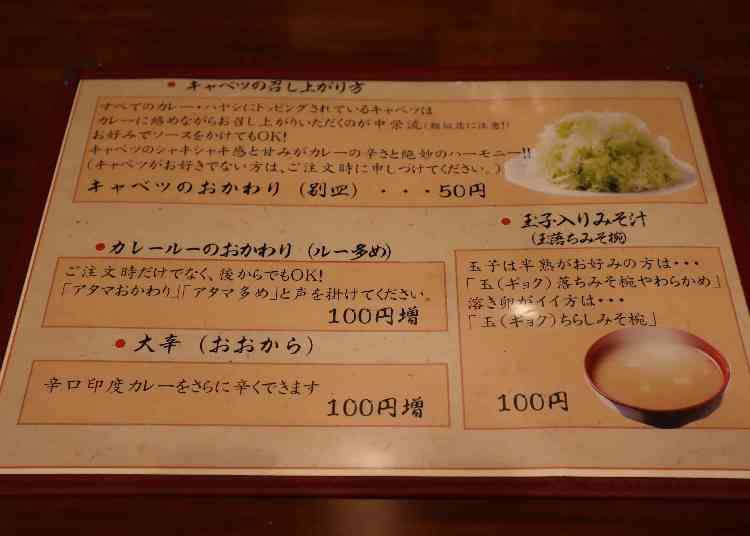 キャベツの召し上がり方
すべてのカレー・ハヤシにトッピングされているキャベツは
カレーに絡めながらお召し上がりいただくのが中栄流(類似店に注意!)
お好みでソースをかけてもOK!
キャベツのシャキシャキ感と甘みがカレーの辛さと絶妙のハーモニー!!
(キャベツがお好きでない方は、ご注文時に申しつけてください。)
キャベツのおかわり(別皿)・・・50円
カレールーのおかわり(ルー多め)
ご注文時だけでなく、後からでもOK!
「アタマおかわり」「アタマ多め」と声を掛けてください。
100円増
大辛(おおから)
辛口印度カレーをさらに辛くできます
100円増
玉子入りみそ汁
(玉落ちみそ椀)
玉子は半熟がお好みの方は・・・
「玉(ギョク)落ちみそ椀やわらかめ」
溶き卵がイイ方は・・・
「玉(ギョク)ちらしみそ椀」
100円